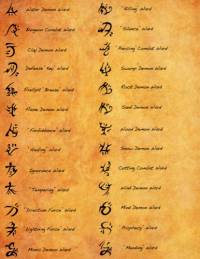 Water Demon Ward
Weapon Combat Ward
Clay Demon Ward
Defense "Key" Ward
Firespit Ward
Flame Demon Ward
"Forbiddance" Ward
"Healing" Ward
Ignorance Ward
"Tampering" Ward
Force" Ward
"Lightning Force" Ward
Mimic Demon Ward
"Killing" Ward
"Silence" Ward
Piercing Combat Ward
Swamp Demon Ward
Rock Demon Ward
Sand Demon Ward
Wood Demon Ward
Snow Demon Ward
Cutting Combat Ward
Wind Demon Ward
Mind Demon Ward
"Prophecy" Ward
"Reading" Ward